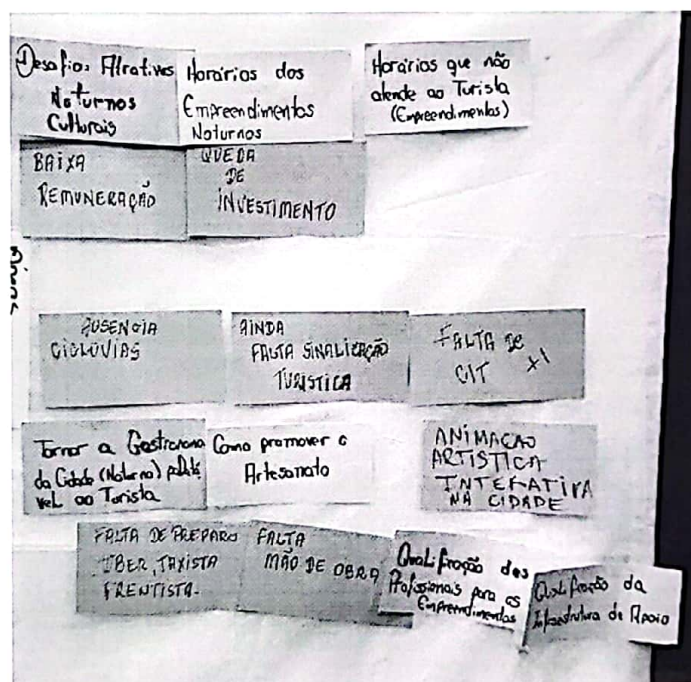 Desafios Atrativos
Noturnos
Culturais
Horários dos
Empreendimentos
Noturnos
Horários que não
atende ao Turista
(Empreendimentos)
BAIXA
REMUNERAÇÃO
QUEDA
DE
INVESTIMENTO
AUSENCIA
CICLOVIAS
AINDA
FALTA SINALIZAÇÃO
TURISTICA
FALTA DE
CIT x1
Tornar a Gastronomia
da Cidade (Noturna) palatá
vel ao Turista
Como promover o
Artesanato
ANIMAÇAO
ARTISTICA
INTERATIVA
NA CIDADE
FALTA DE PREPARO
UBER, TAXISTA
FRENTISTA.
FALTA
MÃO DE OBRA
Qualificação dos
Profissionais para os
Empreendimentos
Qualificação da
Infraestrutura de Apoio